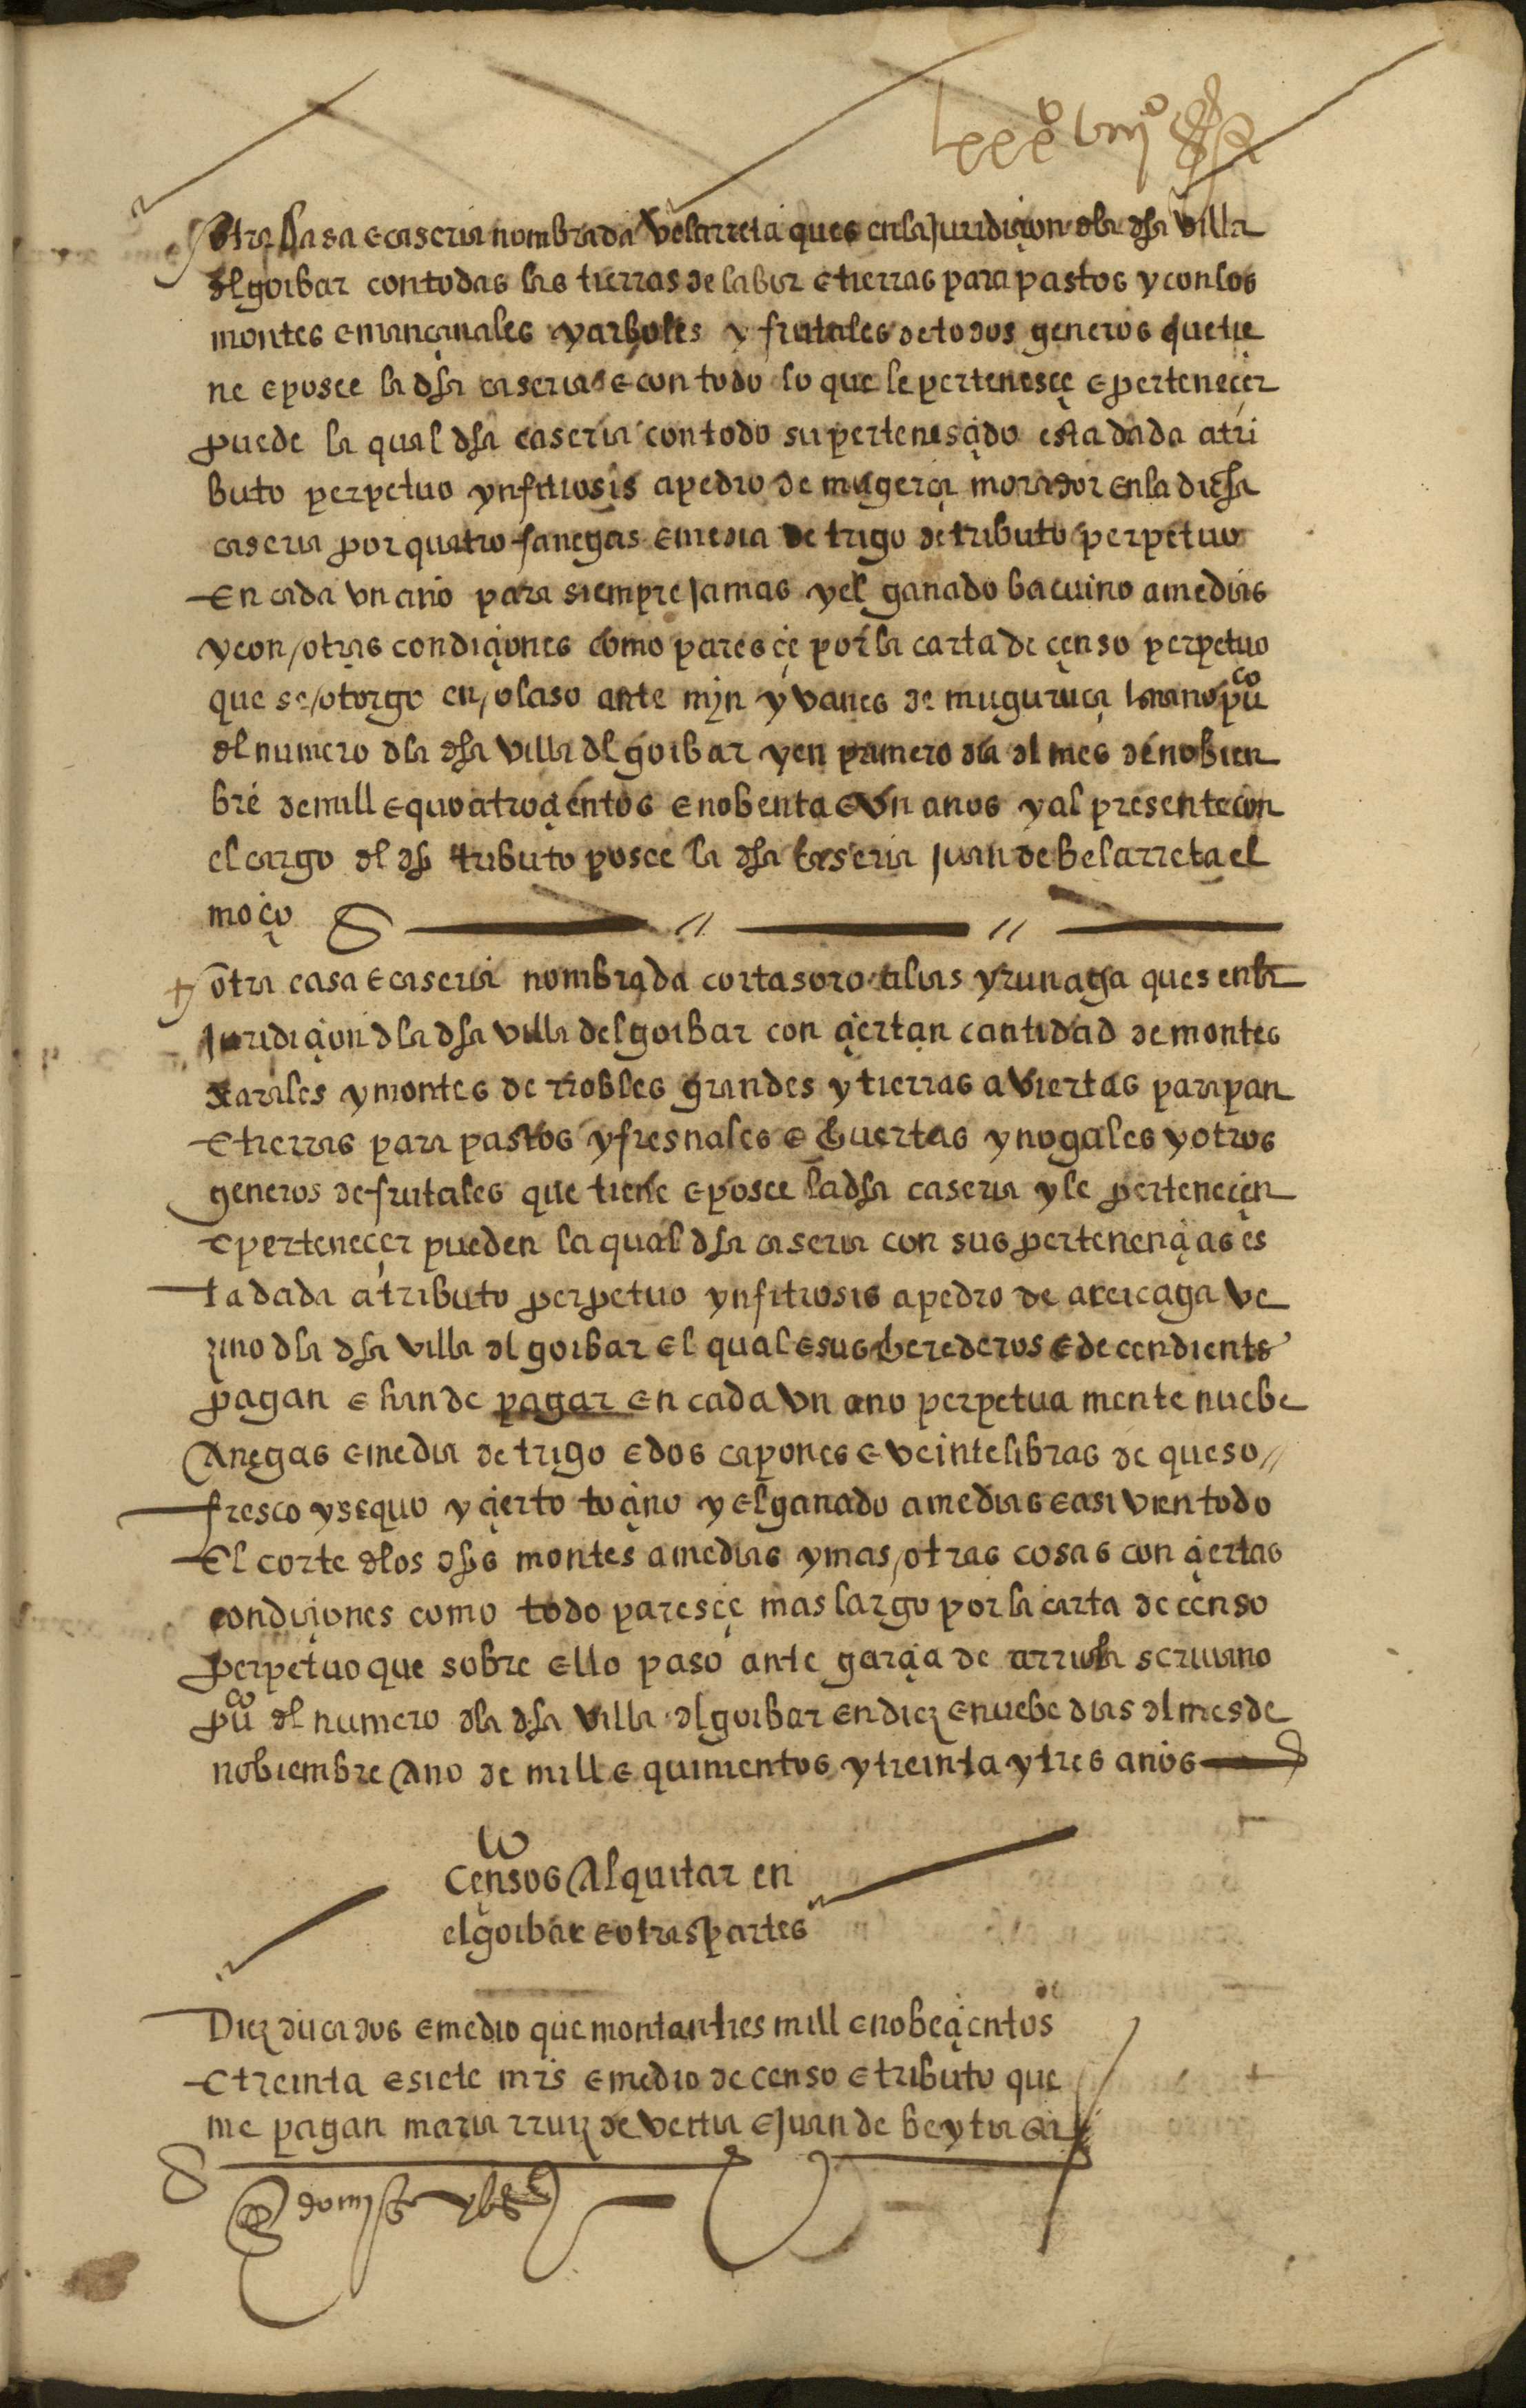 otra Casa e caseria nombrada velarreta ques en la juridiçion dla dha villa
dlgoibar con todas las tierras de labor e tierras para pastos y con los
montes e mançanales y arboles y frutales de todos generos que tie
ne e posee la dha caseria e con todo lo que le pertenesçe e perteneçer
puede la qual dha caseria con todo su pertenesçido esta dada a tri
buto perpetuo ynfitiosis a pedro de mugerça morador en la dicha
caseria por quatro fanegas e media de trigo de tributo perpetuo
En cada vn año para siempre jamas y el ganado bacuino a medias
y con otras condiçiones como paresçe por la carta de çenso perpetuo
que se otorgo en olaso ante mjn yvanes de muguruça puco
dl numero dla dha villa dlgoibar y en primero dia dl mes de nobien
bre de mill e quoatroçientos e nobenta e vn anos y al presente con
el cargo dl dho tributo posee la dha caseria juan de belarreta el
moço
otra casa e caseria nombrada cortasoro alias yrunaga ques en la
juridiçion dla dha villa delgoibar con çiertan cantidad de montes
xarales y montes de rrobles grandes y tierras aviertas para pan
E tierras para pastos y fresnales e huertas y nogales y otros
generos de frutales que tiene e posee la dha caseria y le perteneçen
e perteneçer pueden la qual dha caseria con sus pertenençias es
ta dada a tributo perpetuo ynfitiosis a pedro de areicaga ve
zino dla dha villa dlgoibar El qual e sus herederos e decendientes
pagan e han de pagar En cada vn ano perpetua mente nuebe
Anegas e media de trigo e dos capones e veinte libras de queso
fresco y sequo y çierto toçino y El ganado a medias e asi vien todo
El corte dlos dhos montes a medias y mas otras cosas con çiertas
condiçiones como todo paresçe mas largo por la carta de censo
perpetuo que sobre Ello paso ante garçia de scriuano
puco dl numero dla dha villa dlgoibar En diez e nuebe dias dl mes de
nobiembre Ano de mill e quinientos y treinta y tres anos
Çensos Al quitar en
elgoibar e otras partes
Diez ducados e medio que montan tres mill e nobeçientos
E treinta e siete mrs e medio de censo e tributo que
me pagan maria rruiz de e juan de